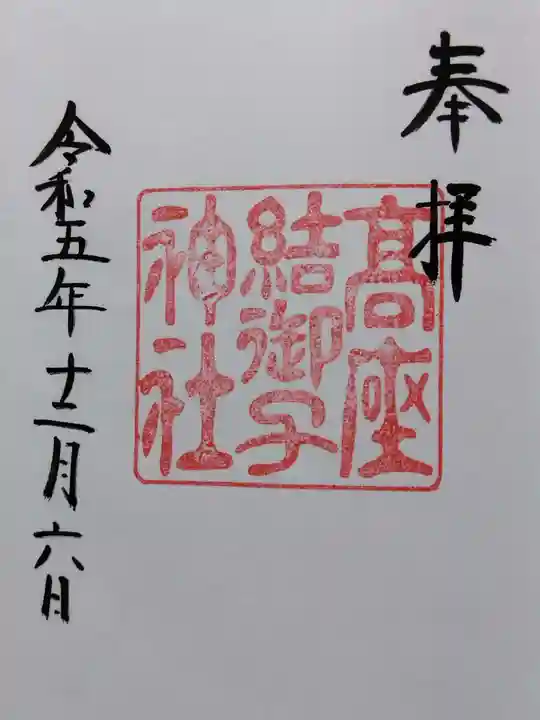 奉拝
高座
結御子
神社
令和五年十二月六日